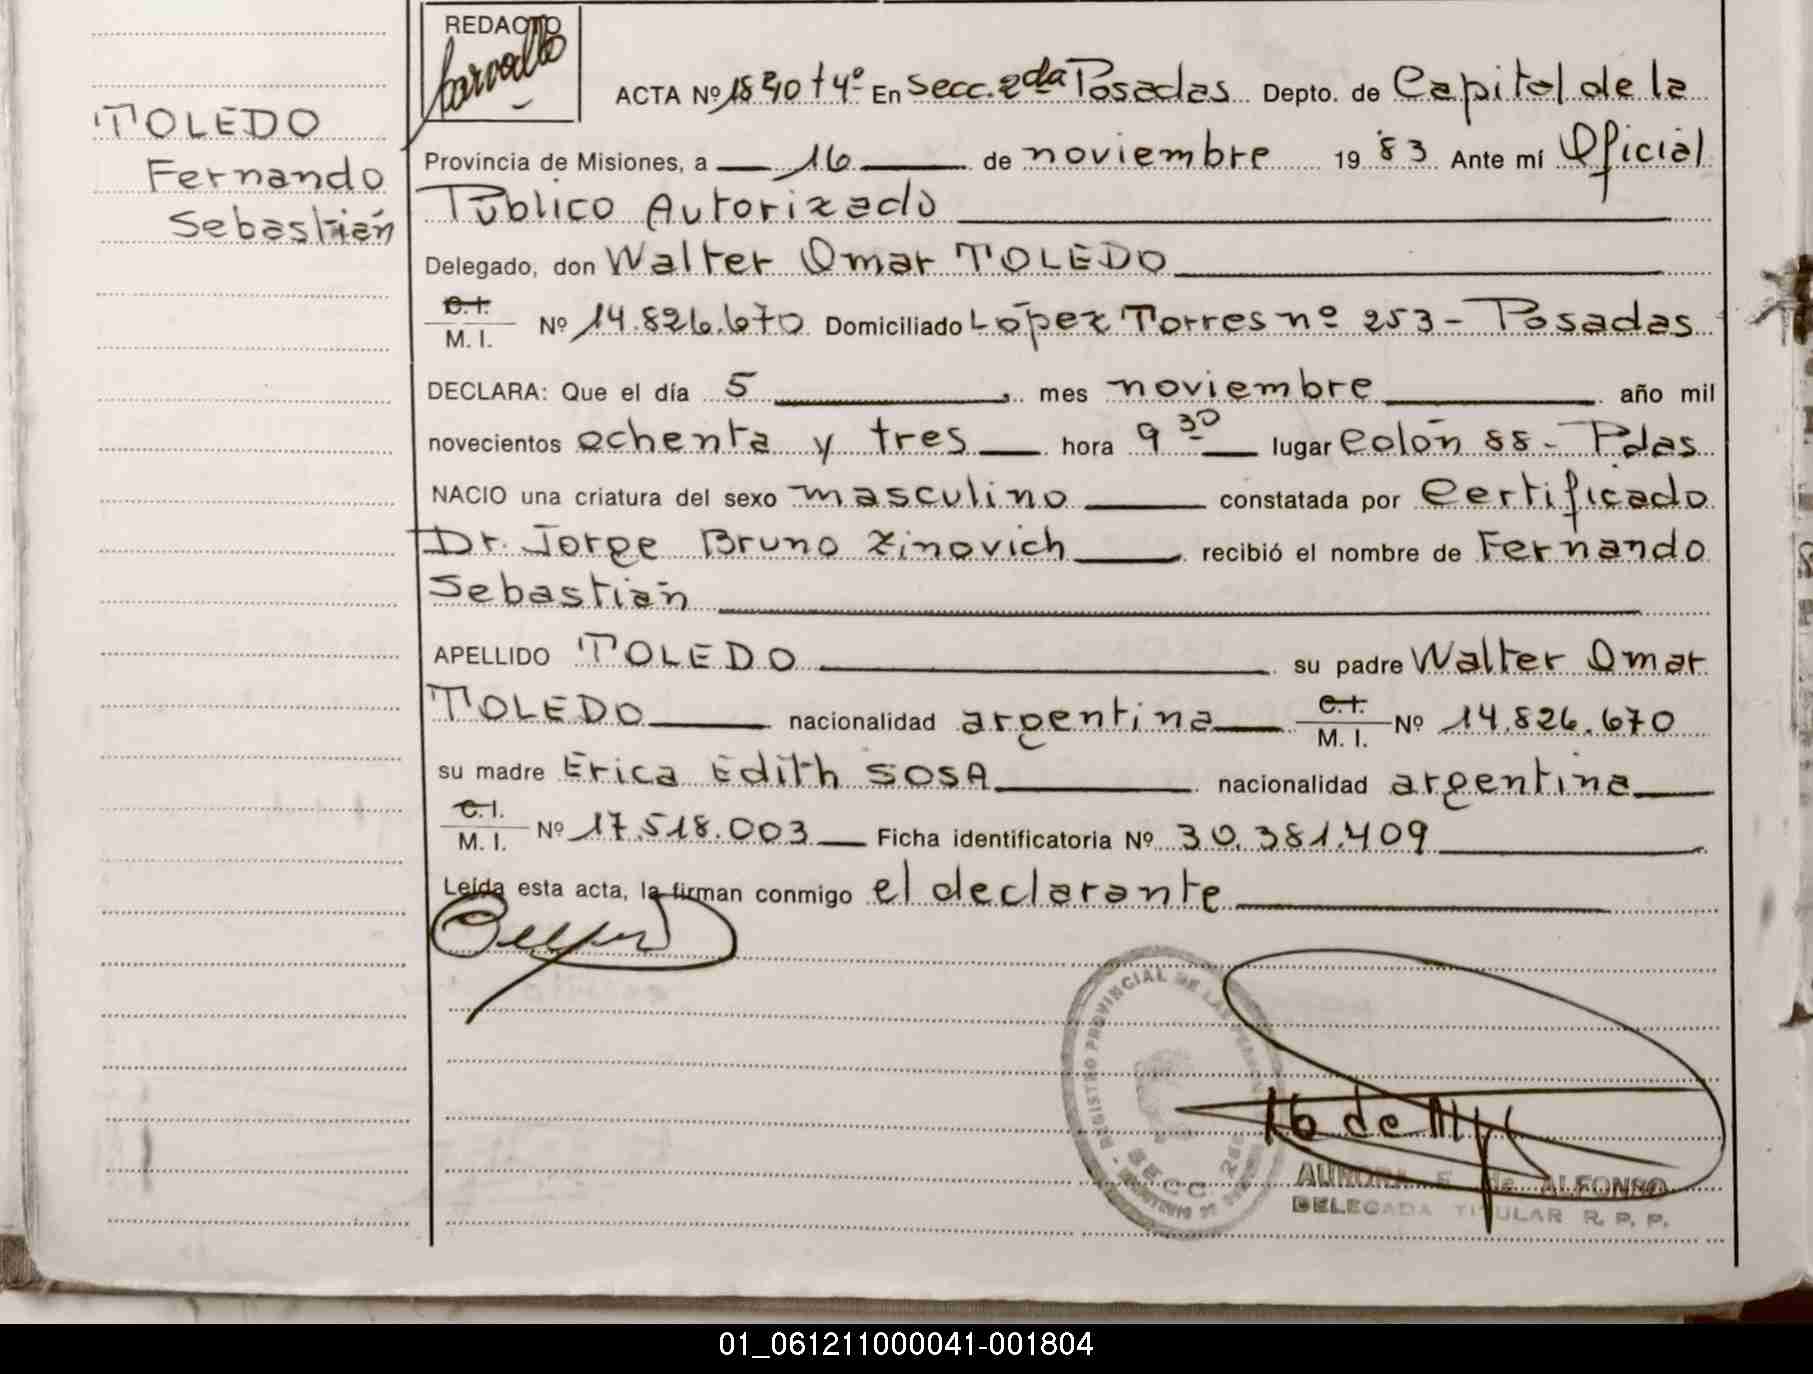 TOLEDO
Fernando
Sebastián
REDACTO
ACTA Nº 1840 tº 4º En Secc. 2da Posadas Depto. de Capital de la
Provincia de Misiones, a 16 de noviembre 19 83 Ante mí Oficial
Público Autorizado
Delegado, don Walter Omar TOLEDO
C.I.
M. I. Nº 14.826.670 Domiciliado López Torres nº 253 - Posadas
DECLARA: Que el día 5 mes noviembre año mil
novecientos ochenta y tres hora 9 30 lugar Colón 88 - Pdas
NACIO una criatura del sexo masculino constatada por Certificado
Dr. Jorge Bruno Zinovich recibió el nombre de Fernando
Sebastián
APELLIDO TOLEDO su padre Walter Omar
TOLEDO nacionalidad argentina C.I. M. I. Nº 14.826.670
su madre Erica Edith SOSA nacionalidad argentina
C.I.
M. I. Nº 17.518.003 Ficha identificatoria Nº 30.381.409
Leída esta acta, la firman conmigo el declarante
REGISTRO PROVINCIAL DE LAS PERSONAS
SECC. 2da
AURORA E. de ALFONSO
DELEGADA TITULAR R. P. P.
01_061211000041-001804